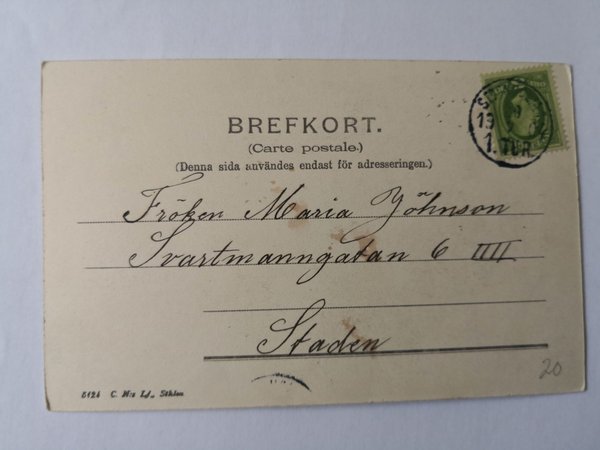 BREFKORT.
(Carte postale.)
(Denna sida användes endast för adresseringen.)
19
1. TUR.
Fröken Maria Jöhnson
Svartmanngatan 6 IIII
Staden
20